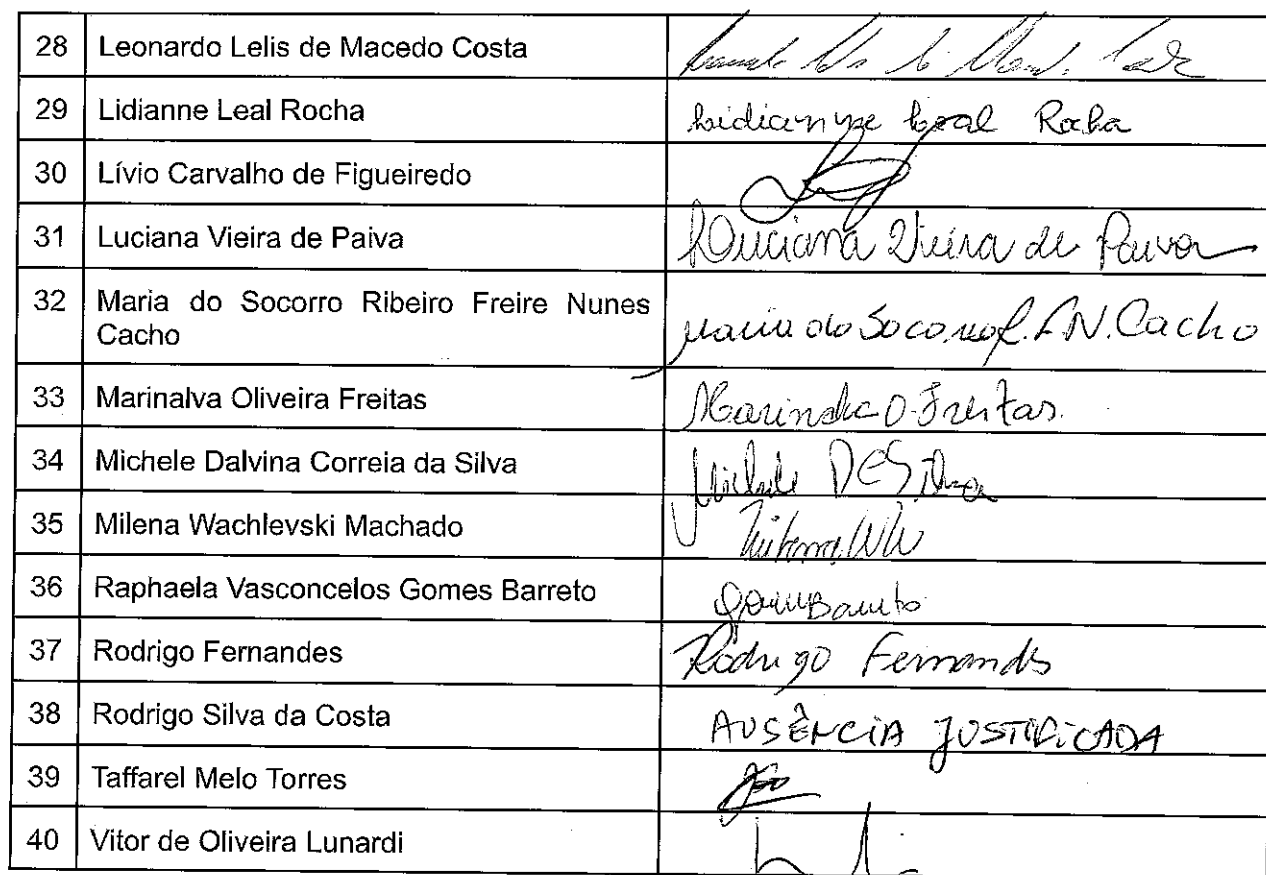 28 Leonardo Lelis de Macedo Costa
29 Lidianne Leal Rocha Lidianne Leal Rocha
30 Lívio Carvalho de Figueiredo
31 Luciana Vieira de Paiva Luciana Vieira de Paiva
32 Maria do Socorro Ribeiro Freire Nunes
Cacho Maria do Socorro R. F. N. Cacho
33 Marinalva Oliveira Freitas Marinalva O. Freitas.
34 Michele Dalvina Correia da Silva Michele DCSilva
35 Milena Wachlevski Machado Milena WM
36 Raphaela Vasconcelos Gomes Barreto
37 Rodrigo Fernandes Rodrigo Fernandes
38 Rodrigo Silva da Costa AUSÊNCIA JUSTIFICADA
39 Taffarel Melo Torres
40 Vitor de Oliveira Lunardi